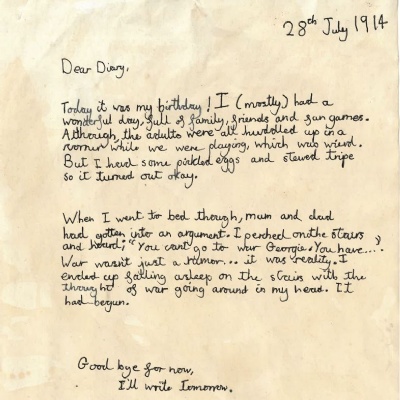 28th July 1914
Dear Diary,
Today it was my birthday! I (mostly) had a
wonderful day, full of family, friends and fun games.
Although, the adults were all huddled up in a
corner while we were playing, which was wierd.
But I had some pickled eggs and stewed tripe
so it turned out okay.
When I went to bed though, mum and dad
had gotten into an argument. I perched on the stairs
and heard; "You cant go to war Georgie. You have..."
War wasn't just a rumor... it was reality. I
ended up falling asleep on the stairs with the
thought of war going around in my head. It
had begun.
Good bye for now,
I'll write Tomorrow.